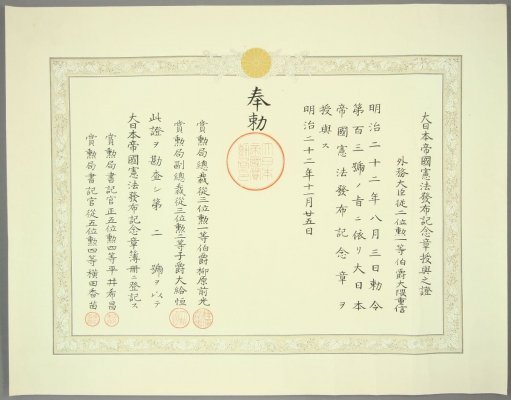 大日本帝國憲法發布記念章授與之證
外務大臣從二位勲一等伯爵大隈重信
明治二十二年八月三日勅令
第百三號ノ旨ニ依リ大日本
帝國憲法發布記念章ヲ
授與ス
明治二十二年十一月廿五日
奉勅
賞勲局總裁從三位勲一等伯爵柳原前光
賞勲局副總裁從三位勲二等子爵大給恒
此證ヲ勘査シ第二號ヲ以テ
大日本帝國憲法發布記念章簿冊ニ登記ス
賞勲局書記官正五位勲四等平井希昌
賞勲局書記官從五位勲四等横田香苗